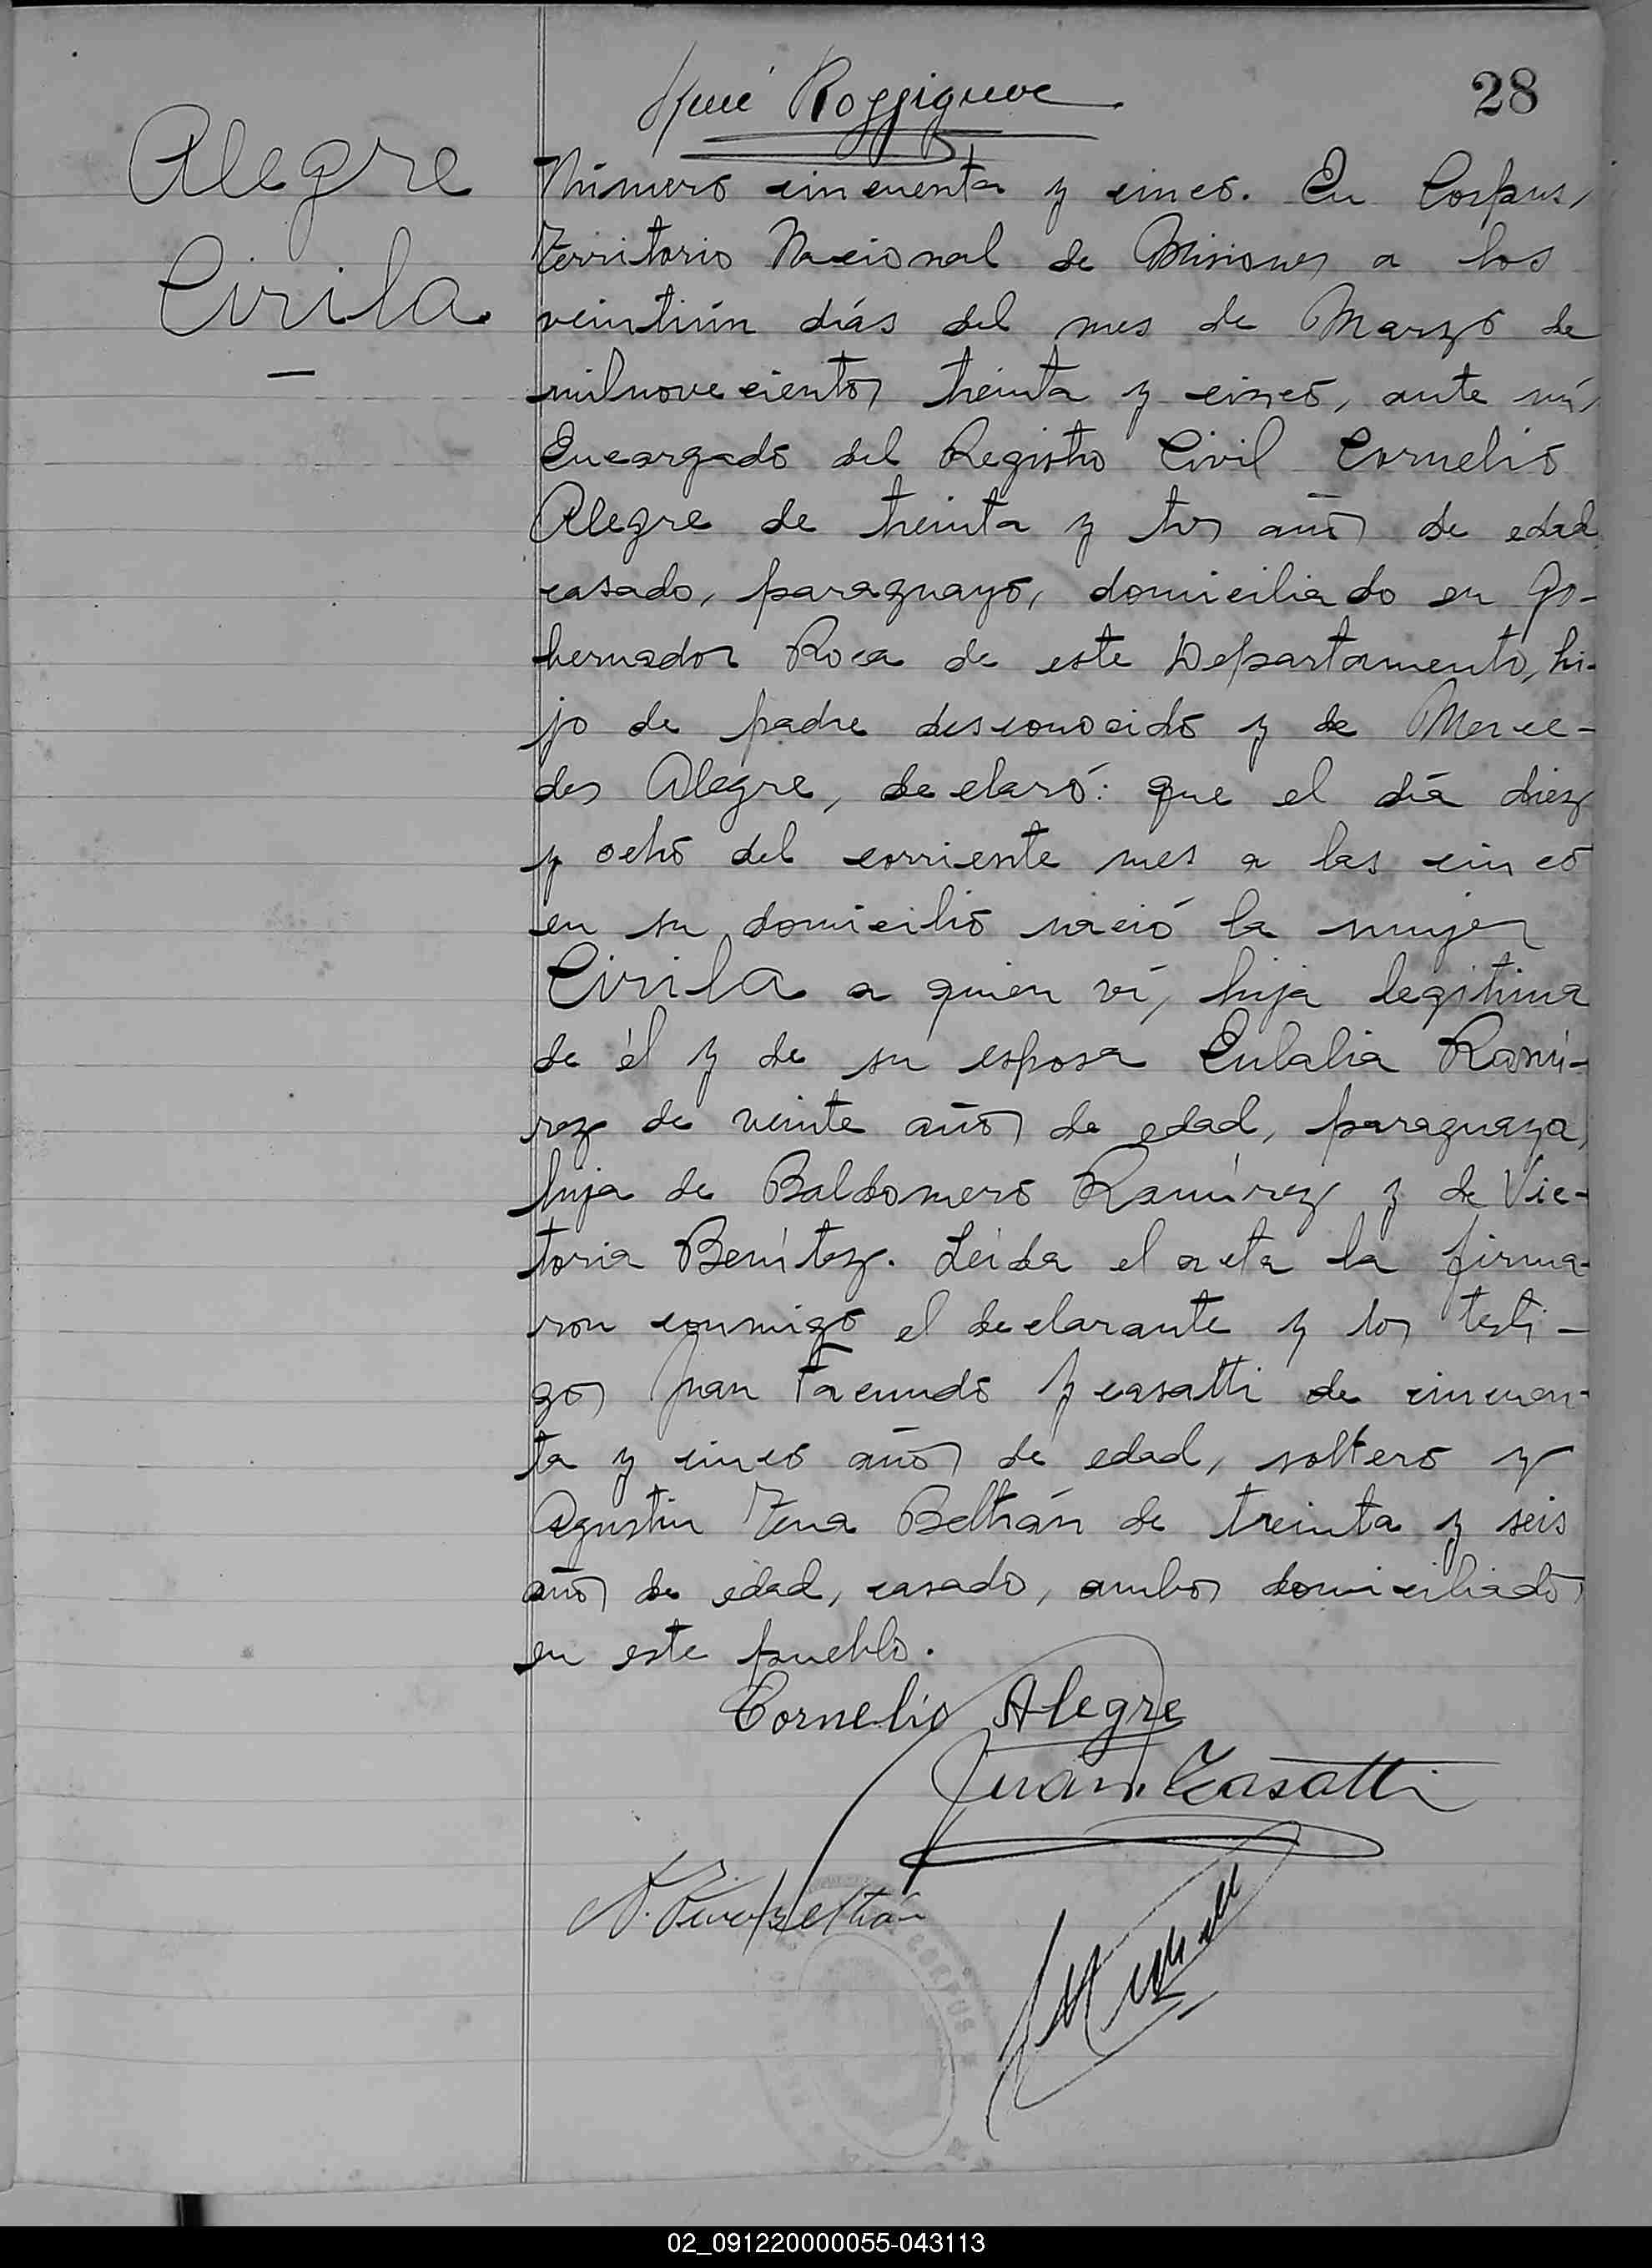 René Roggigueve
28
Alegre
Cirila
Número cincuenta y cinco. En Corpus,
Territorio Nacional de Misiones a los
veintiún días del mes de Marzo de
milnovecientos treinta y cinco, ante mí,
Encargado del Registro Civil Cornelio
Alegre de treinta y tres años de edad,
casado, paraguayo, domiciliado en Go-
bernador Roca de este Departamento, hi-
jo de padre desconocido y de Merce-
des Alegre, declaró: que el día diez
y ocho del corriente mes a las cinco
en su domicilio nació la mujer
Cirila a quien ví, hija legítima
de él y de su esposa Eulalia Ramí-
rez de veinte años de edad, paraguaya,
hija de Baldomero Ramírez y de Vic-
toria Benítez. Leída el acta la firma-
ron conmigo el declarante y los testi-
gos Juan Facundo Ycasatti de cincuen-
ta y cinco años de edad, soltero y
Agustin Tena Beltrán de treinta y seis
años de edad, casado, ambos domiciliados
en este pueblo.
Cornelio Alegre
Juan Ycasatti
Beltrán
CORPUS
02_091220000055-043113